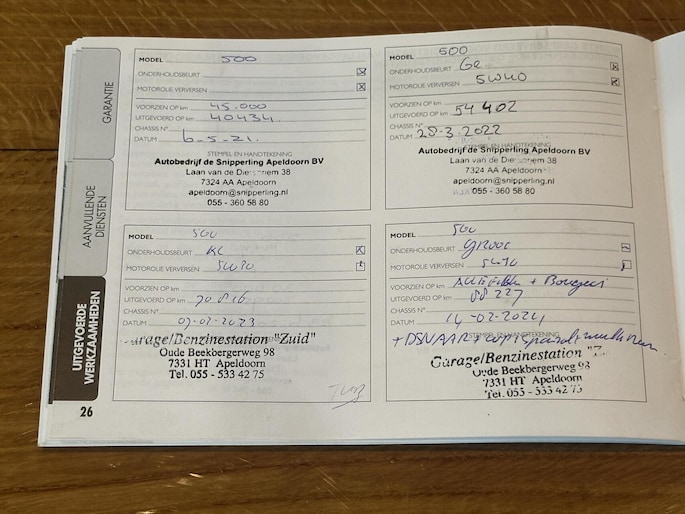 GARANTIE
AANVULLENDE
DIENSTEN
UITGEVOERDE
WERKZAAMHEDEN
26
MODEL 500
ONDERHOUDSBEURT
MOTOROLIE VERVERSEN
VOORZIEN OP km 45.000
UITGEVOERD OP km 40434
CHASSIS N°
DATUM 6-5-21.
STEMPEL EN HANDTEKENING
Autobedrijf de Snipperling Apeldoorn BV
Laan van de Dierenriem 38
7324 AA Apeldoorn
apeldoorn@snipperling.nl
055 - 360 58 80
MODEL 500
ONDERHOUDSBEURT GR
MOTOROLIE VERVERSEN 5W40
VOORZIEN OP km
UITGEVOERD OP km 54402
CHASSIS N°
DATUM 28-3-2022
STEMPEL EN HANDTEKENING
Autobedrijf de Snipperling Apeldoorn BV
Laan van de Dierenriem 38
7324 AA Apeldoorn
apeldoorn@snipperling.nl
055 - 360 58 80
MODEL 500
ONDERHOUDSBEURT KL
MOTOROLIE VERVERSEN
VOORZIEN OP km
UITGEVOERD OP km 70816
CHASSIS N°
DATUM 07-02-2023
Garage/Benzinestation "Zuid"
Oude Beekbergerweg 98
7331 HT Apeldoorn
Tel. 055 - 533 42 75
MODEL 500
ONDERHOUDSBEURT groot
MOTOROLIE VERVERSEN
VOORZIEN OP km + Bougies
UITGEVOERD OP km 88227
CHASSIS N°
DATUM 14-02-2024
STEMPEL EN HANDTEKENING
Garage/Benzinestation "Z
Oude Beekbergerweg 98
7331 HT Apeldoorn
Tel. 055 - 533 42 75